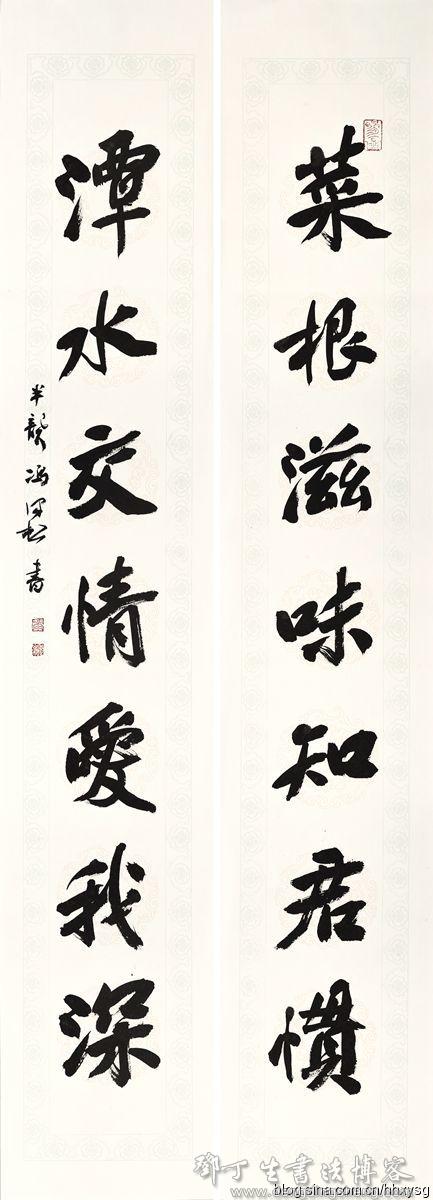 菜根滋味知君慣
潭水交情愛我深
書
鄧丁生書法博客
blog.sina.com.cn/hhxysg